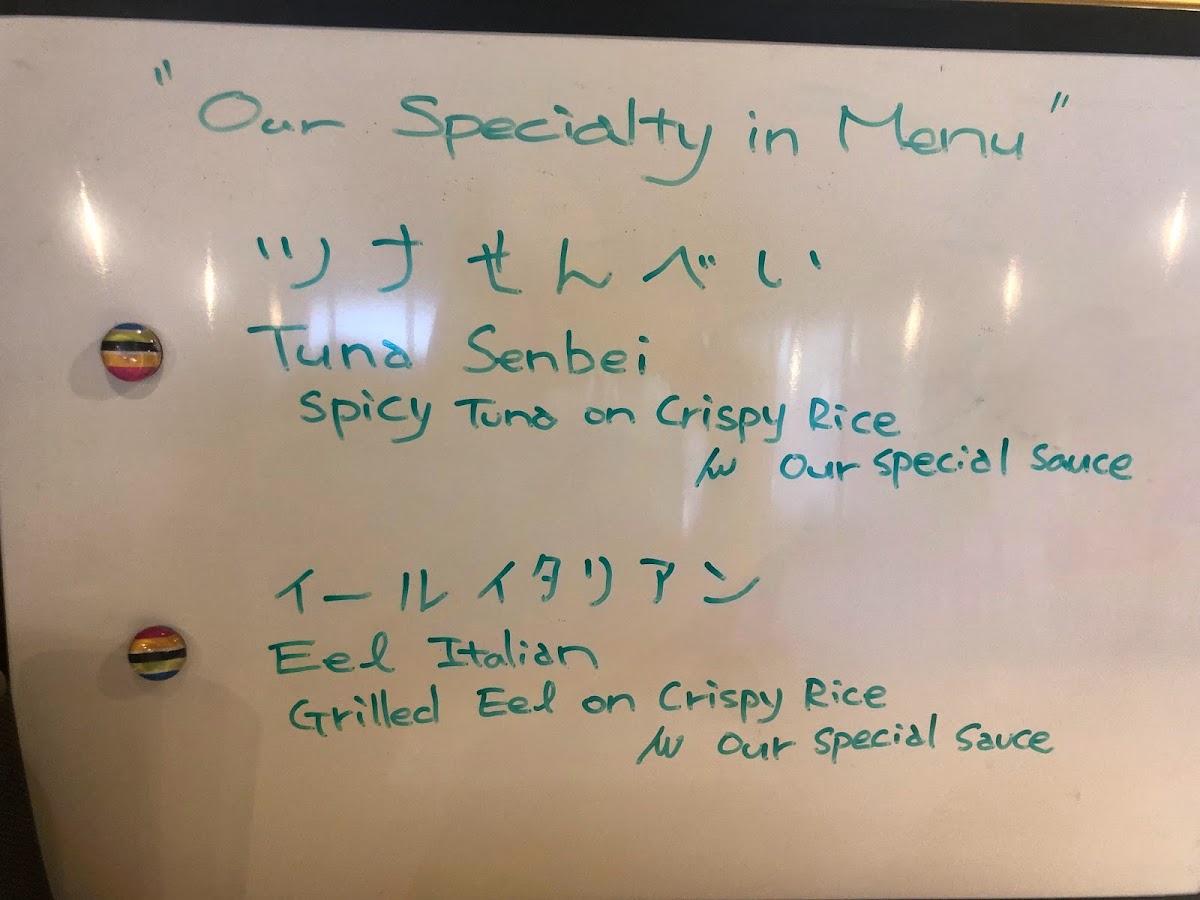 "Our Specialty in Menu"
ツナせんべい
Tuna Senbei
Spicy Tuna on Crispy Rice
/w our special sauce
イールイタリアン
Eel Italian
Grilled Eel on Crispy Rice
/w our special sauce